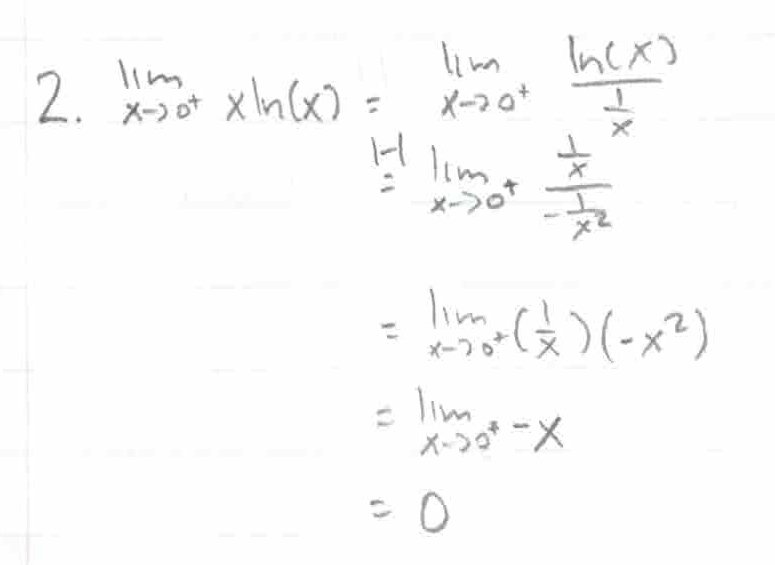 2. lim x→0⁺ x ln(x) = lim x→0⁺ ln(x) / (1/x)
H= lim x→0⁺ (1/x) / (-1/x²)
= lim x→0⁺ (1/x)(-x²)
= lim x→0⁺ -x
= 0